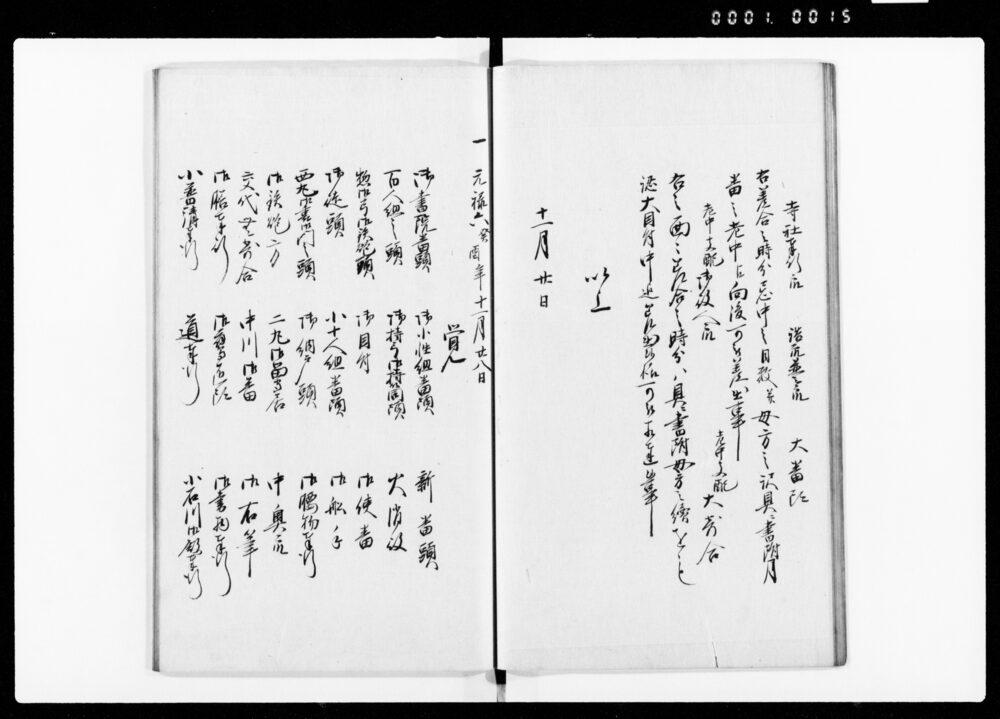 0001 0015
寺社奉行衆 諸衆並之衆 大番頭
右差合之時分忌中之日数并母方之訳具ニ書附月
番之老中江向後可被差出事
老中支配 御役人衆 老中支配 大寄合
右之面々差合之時分ハ具ニ書附母方之続を
認大目付中迄
以上
十一月廿日
一 元禄六癸酉年十一月廿八日
覚
御書院番頭 御小性組番頭 新番頭
百人組之頭 御持弓御持筒頭 火消役
惣御弓御鉄炮頭 御目付 御使番
御徒頭 小十人組番頭 御船手
西丸御裏門之頭 御納戸頭 御腰物奉行
御鉄炮方 二丸御留守居 中奥衆
交代寄合 中川御番 御右筆
御膳奉行 御書物奉行
小普請奉行 道奉行 小石川御殿奉行